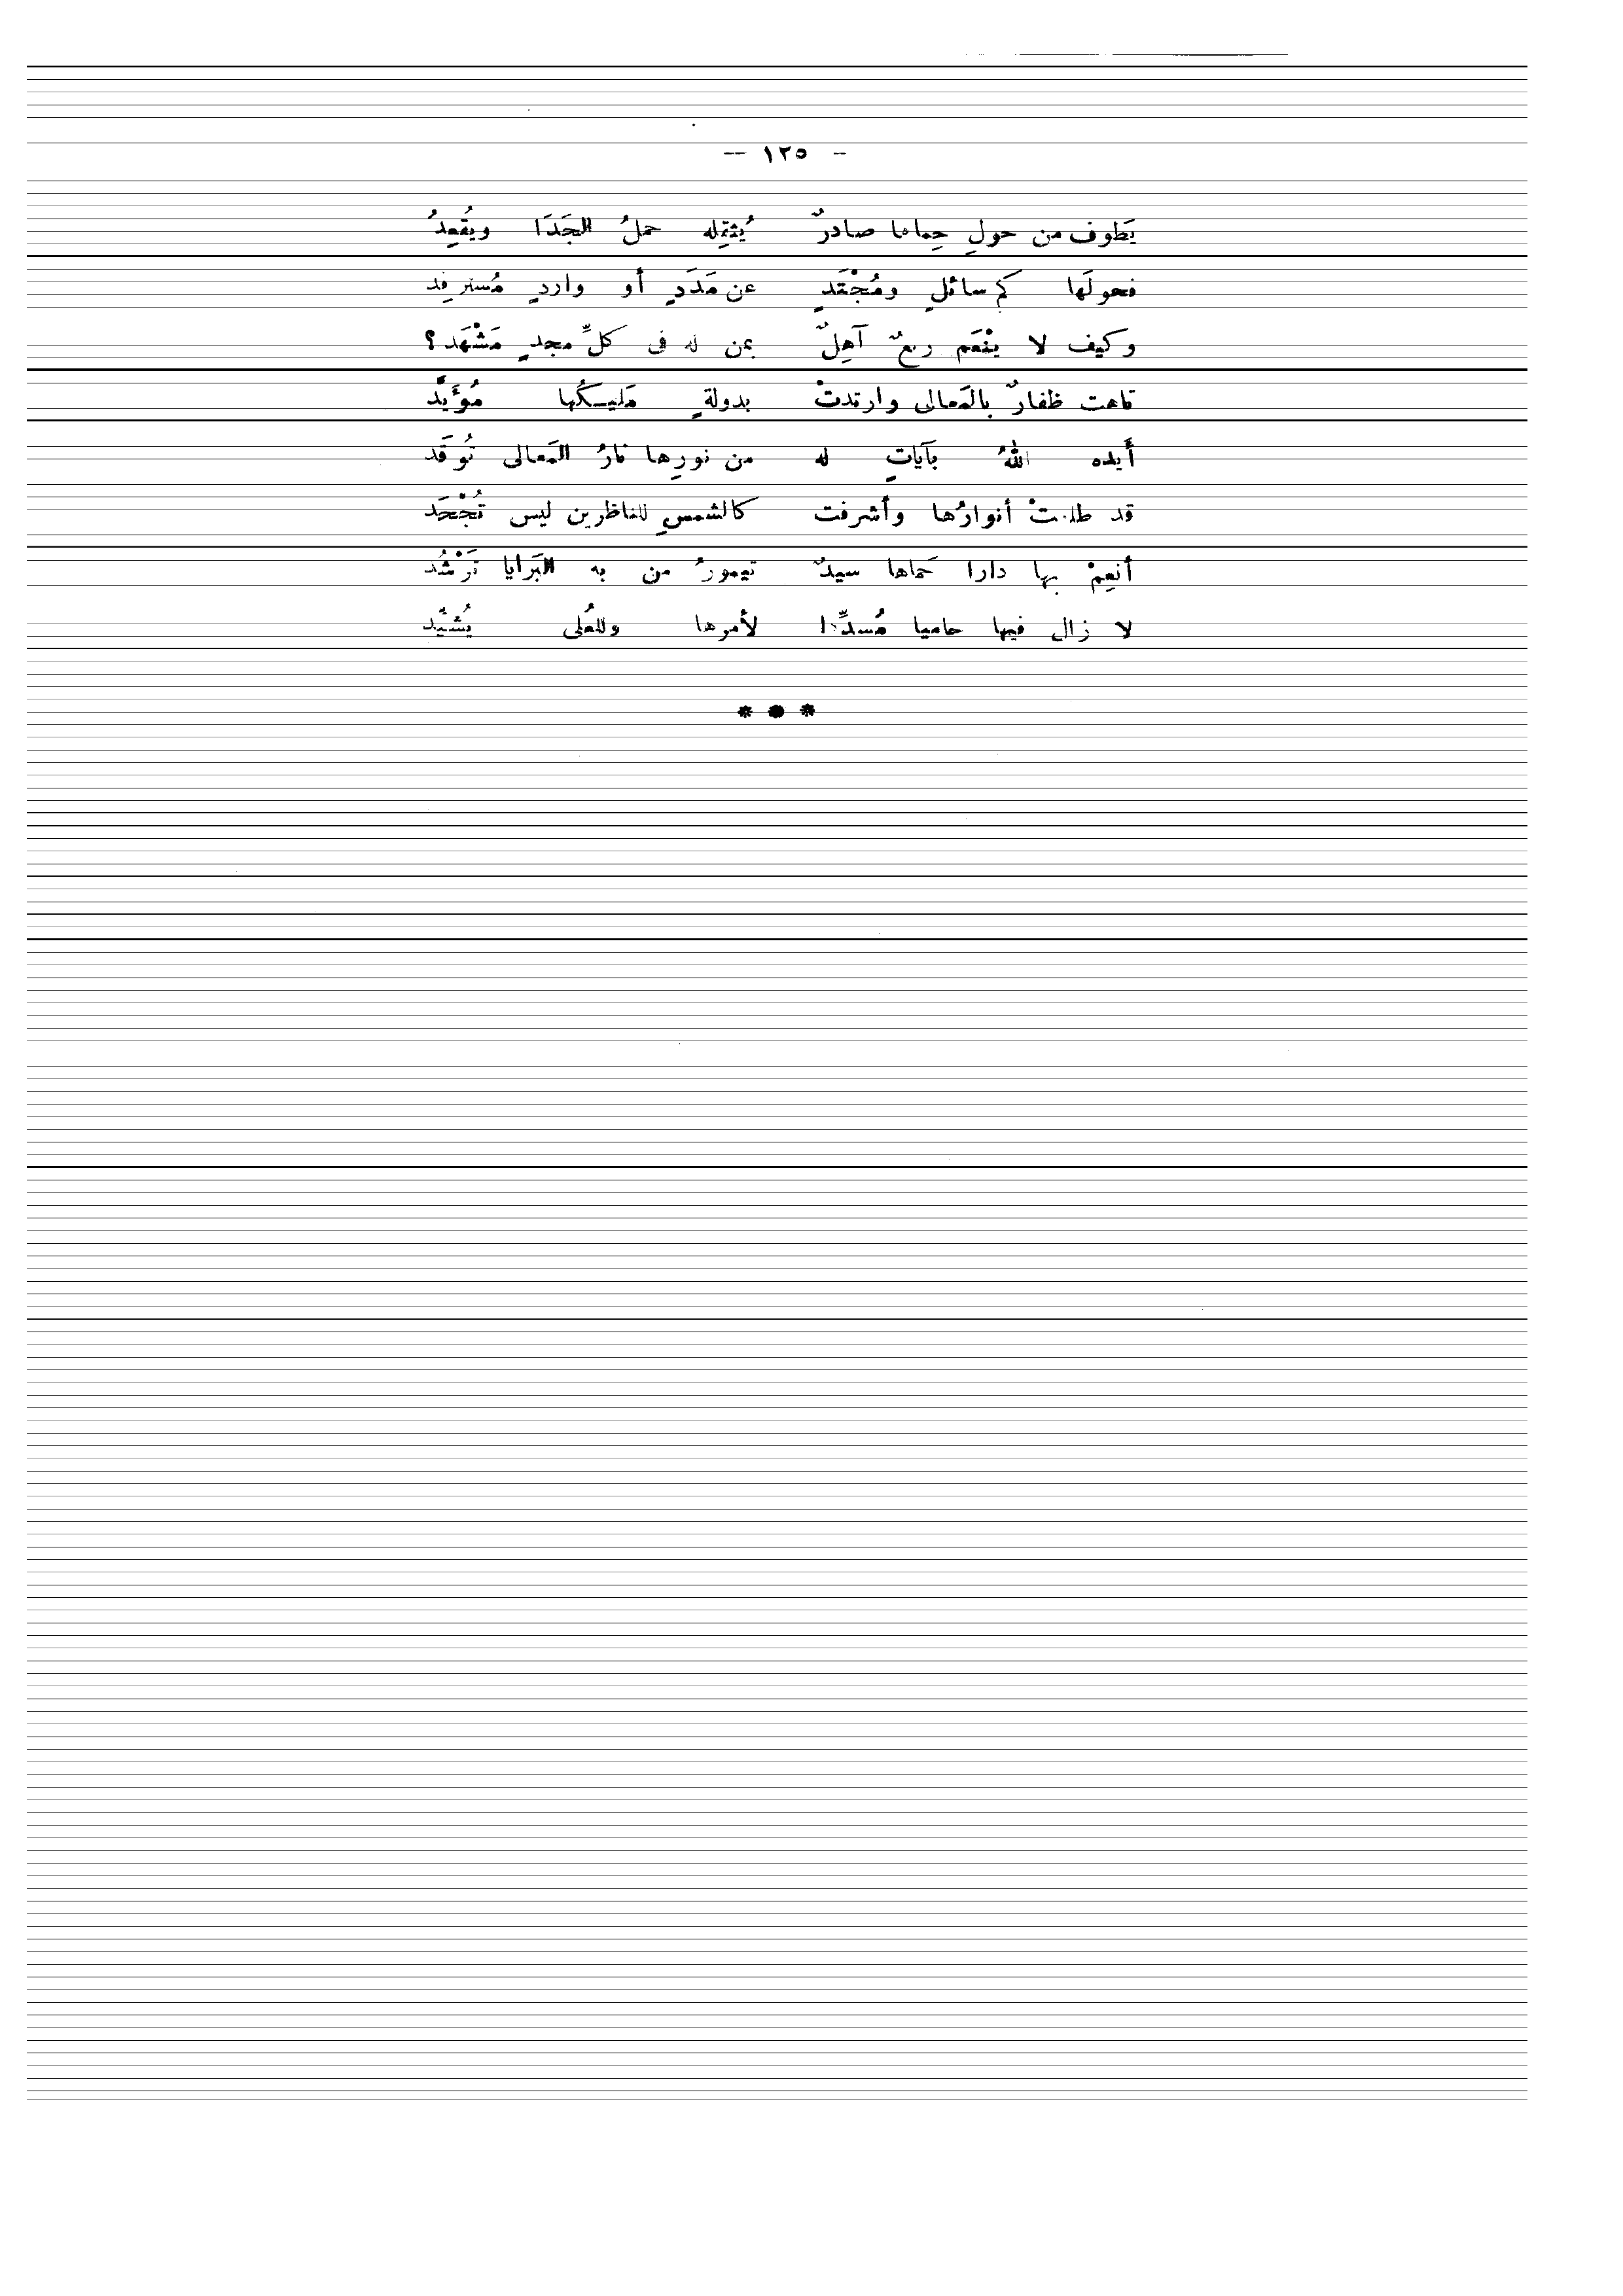 — ١٢٥ —
يَطوف من حولِ حِماها صادرٌ يُثقِله حملُ الجَدَا ويُقعِدُ
فحولَها كم سائلٍ ومُجْتَدٍ عن مَدَدٍ أو واردٍ مُسترفِد
وكيف لا ينْعَم ربعٌ آهِلٌ بمن له فى كلِّ مجدٍ مَشْهَد؟
تاهت ظفارٌ بالمَعالى وارتدتْ بدولةٍ مَليكُها مُؤَيَّد
أَيده اللهُ بآياتٍ له من نورِها نارُ المَعالى تُوقَد
قد طلعتْ أنوارُها وأشرفت كالشمسِ للناظرين ليس تُجْحَد
أنعِمْ بها دارا حَماها سيدٌ تيمورُ من به البَرايا تَرْشُد
لا زال فيها حاميا مُسدِّدا لأمرها وللعُلى يُشيِّد
* * *